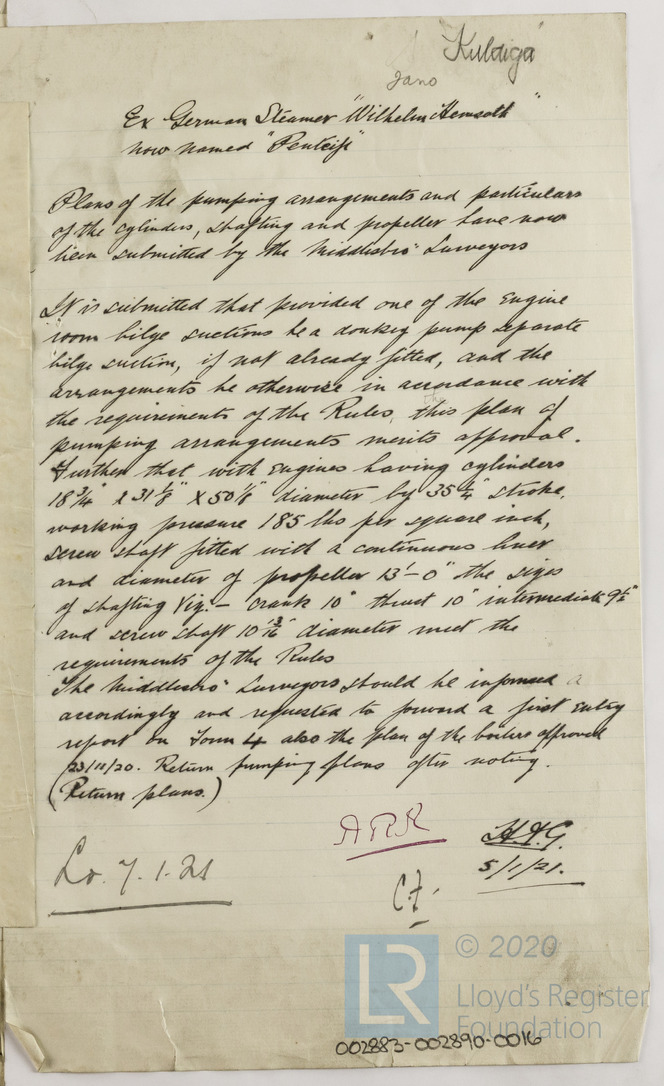 Kuldiga
Jano
Ex German Steamer "Wilhelm Hemsoth"
now named
Plans of the pumping arrangements and particulars
of the cylinders, shafting and propeller have now
been submitted by the Middlesbro' Surveyors
It is submitted that provided one of the Engine
room bilge suctions be a donkey pump separate
bilge suction, if not already fitted, and the
arrangements be otherwise in accordance with
the requirements of the Rules, this plan of
pumping arrangements merits approval.
Further that with Engines having cylinders
18 3/4" x 31 1/8" x 50 1/8" diameter by 35 stroke,
working pressure 185 lbs per square inch,
screw shaft fitted with a continuous liner
and diameter of propeller 13'-0" the sizes
of shafting viz:- crank 10" thrust 10" intermediate 9 1/2"
and screw shaft 10 13/16" diameter meet the
requirements of the Rules
The Middlesbro' Surveyors should be informed
accordingly and requested to forward a first entry
report on Form 4 also the plan of the boilers approved
23/11/20. Return pumping plans after noting.
(Return plans.)
ARR
H.F.G.
5/1/21.
Lo. 7.1.21
C.F.
© 2020
LR
Lloyd's Register
Foundation
002883-002890-0016